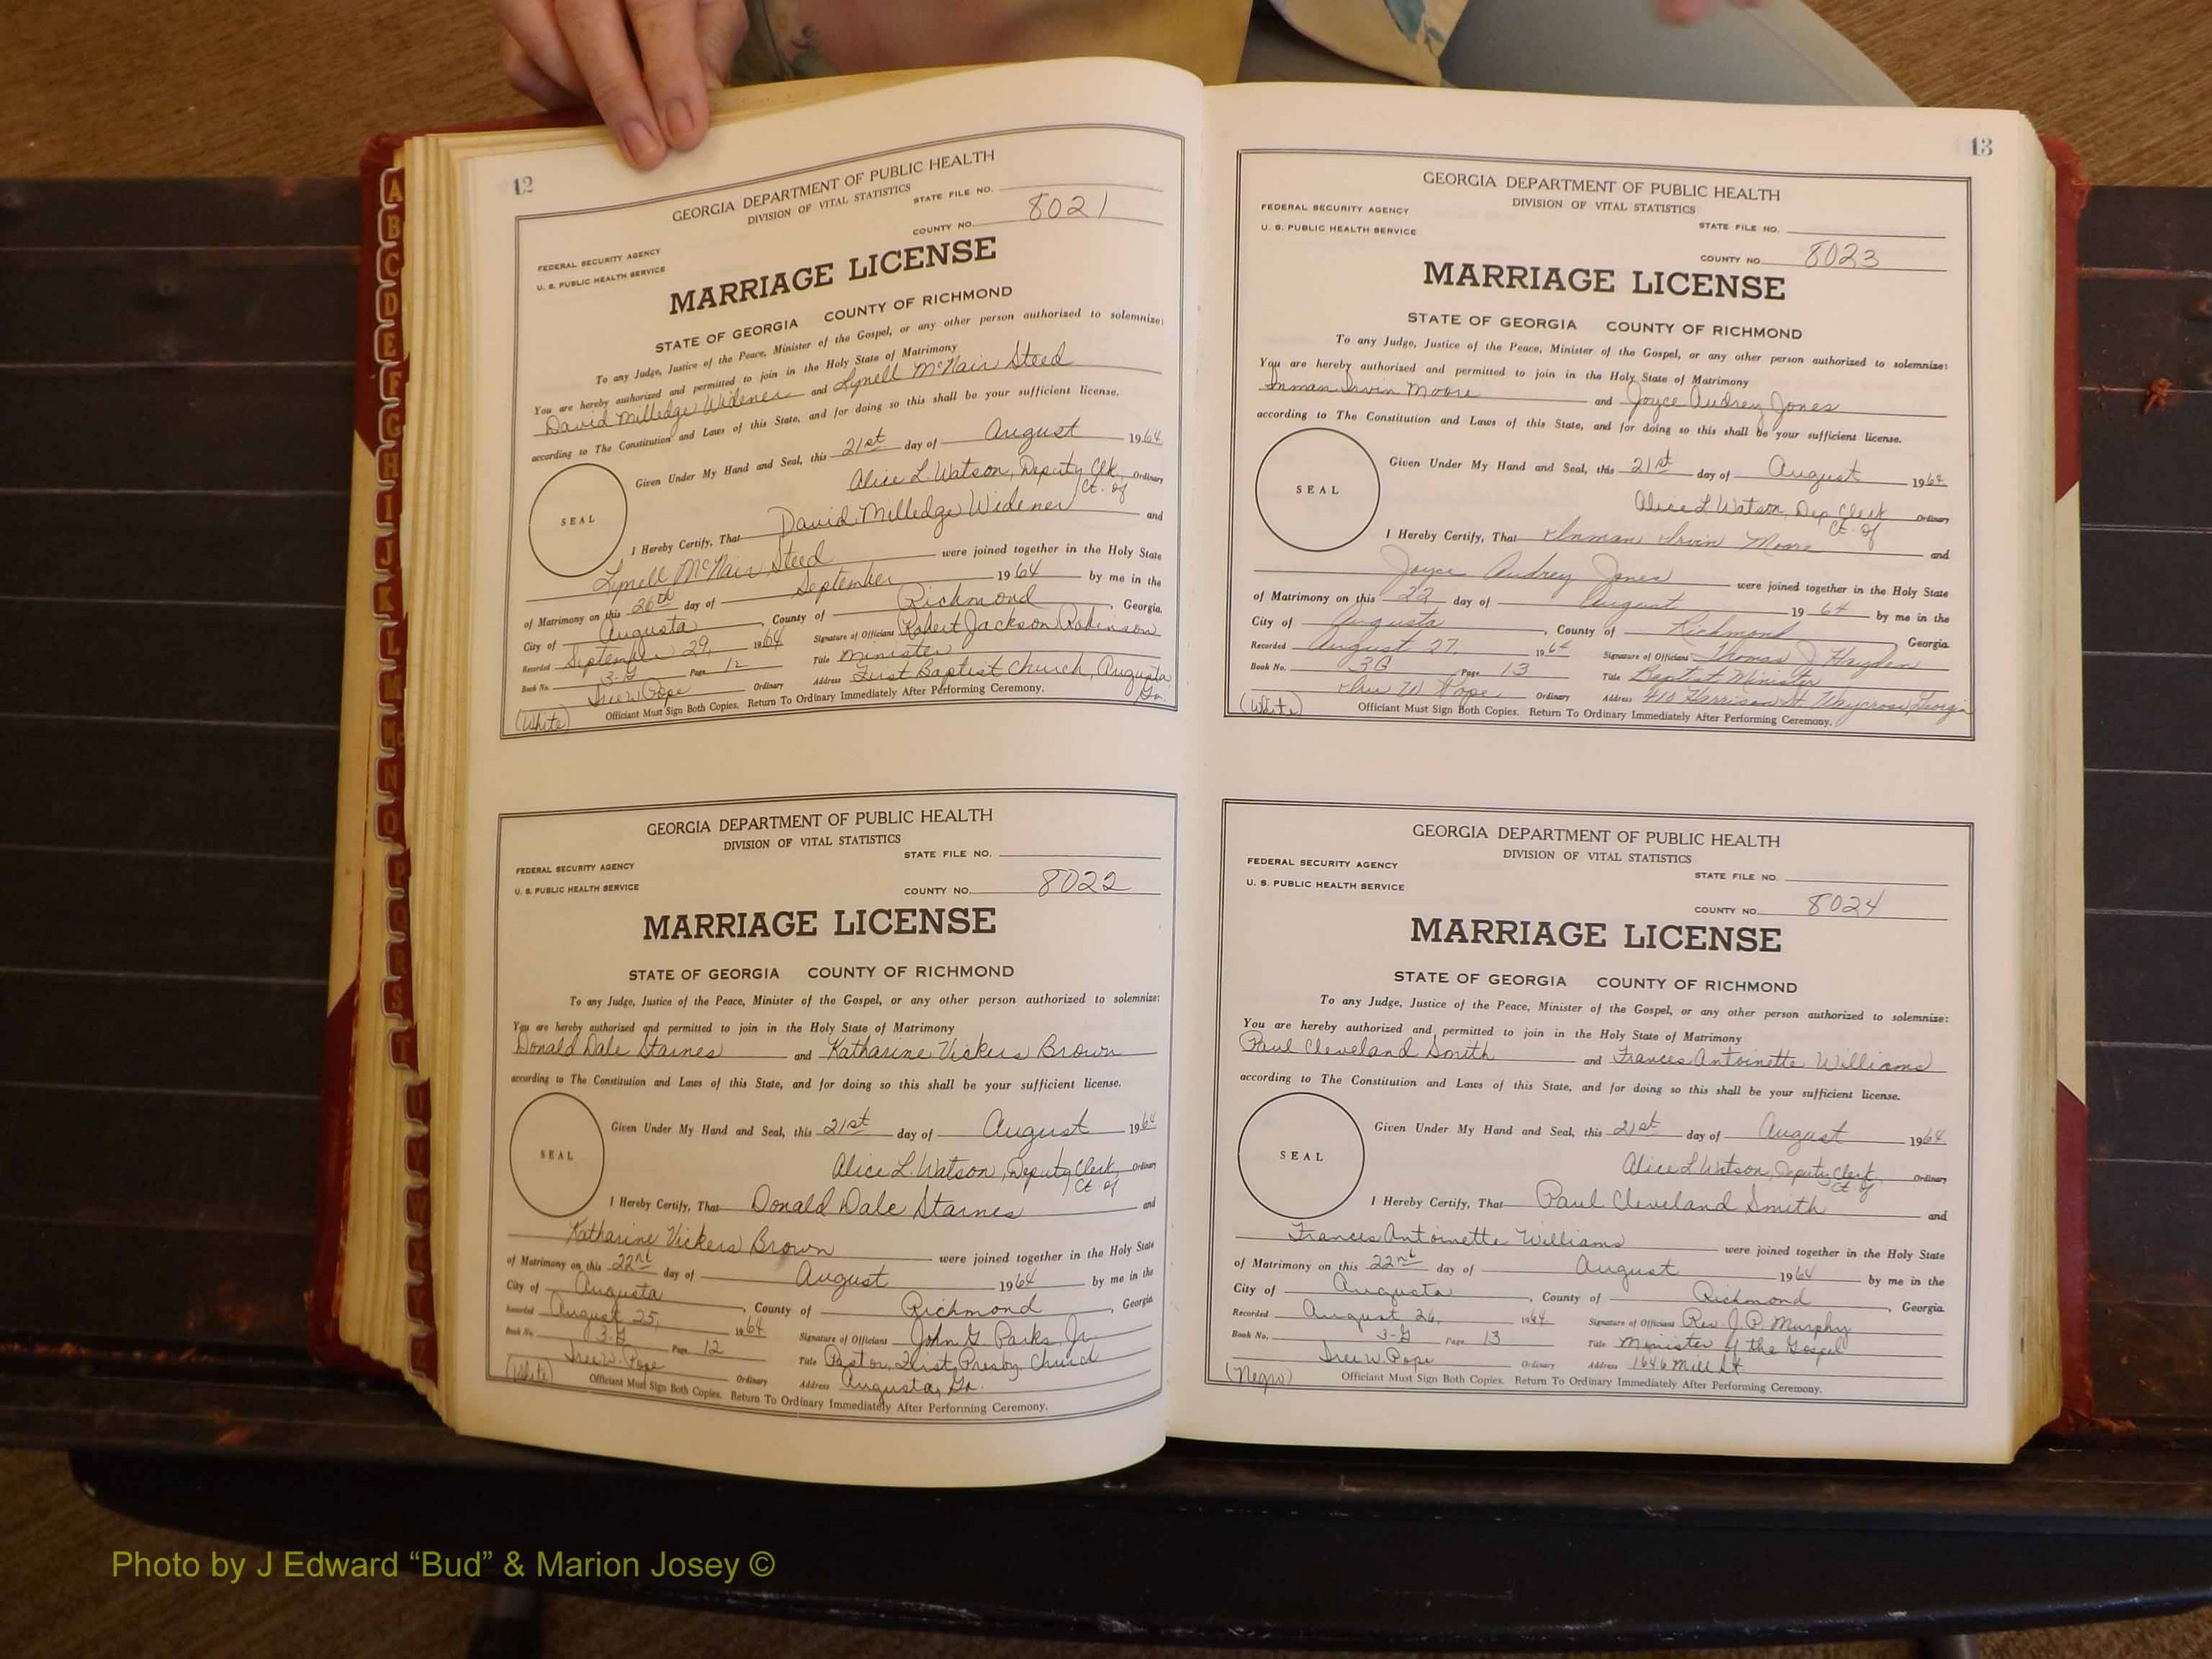 12
GEORGIA DEPARTMENT OF PUBLIC HEALTH
DIVISION OF VITAL STATISTICS
STATE FILE NO.
FEDERAL SECURITY AGENCY
U. S. PUBLIC HEALTH SERVICE
COUNTY NO. 8021
MARRIAGE LICENSE
STATE OF GEORGIA COUNTY OF RICHMOND
To any Judge, Justice of the Peace, Minister of the Gospel, or any other person authorized to solemnize:
You are hereby authorized and permitted to join in the Holy State of Matrimony
David Milledge Widener and Lynell McNair Steed
according to The Constitution and Laws of this State, and for doing so this shall be your sufficient license.
Given Under My Hand and Seal, this 21st day of August 1964
Alice L. Watson, Deputy Clk. Ordinary
Ct. of
SEAL
I Hereby Certify, That David Milledge Widener and
Lynell McNair Steed were joined together in the Holy State
of Matrimony on this 26th day of September 1964 by me in the
City of Augusta, County of Richmond, Georgia.
Recorded September 29, 1964 Signature of Officiant Robert Jackson Robinson
Book No. 3-G Page 12 Title Minister
Ordinary Address First Baptist Church, Augusta, Ga.
(White) Officiant Must Sign Both Copies. Return To Ordinary Immediately After Performing Ceremony.
GEORGIA DEPARTMENT OF PUBLIC HEALTH
DIVISION OF VITAL STATISTICS
STATE FILE NO.
FEDERAL SECURITY AGENCY
U. S. PUBLIC HEALTH SERVICE
COUNTY NO. 8022
MARRIAGE LICENSE
STATE OF GEORGIA COUNTY OF RICHMOND
To any Judge, Justice of the Peace, Minister of the Gospel, or any other person authorized to solemnize:
You are hereby authorized and permitted to join in the Holy State of Matrimony
Donald Dale Starnes and Katharine Vickers Brown
according to The Constitution and Laws of this State, and for doing so this shall be your sufficient license.
Given Under My Hand and Seal, this 21st day of August 1964
Alice L. Watson, Deputy Clerk, Ordinary
Ct. of
SEAL
I Hereby Certify, That Donald Dale Starnes and
Katharine Vickers Brown were joined together in the Holy State
of Matrimony on this 22nd day of August 1964 by me in the
City of Augusta, County of Richmond, Georgia
Recorded August 25, 1964 Signature of Officiant John G. Parks, Jr.
Book No. 3-G Page 12 Title Pastor, First Presby. Church
Ordinary Address Augusta, Ga.
(White) Officiant Must Sign Both Copies. Return To Ordinary Immediately After Performing Ceremony.
13
GEORGIA DEPARTMENT OF PUBLIC HEALTH
DIVISION OF VITAL STATISTICS
FEDERAL SECURITY AGENCY
STATE FILE NO.
U. S. PUBLIC HEALTH SERVICE
COUNTY NO. 8023
MARRIAGE LICENSE
STATE OF GEORGIA COUNTY OF RICHMOND
To any Judge, Justice of the Peace, Minister of the Gospel, or any other person authorized to solemnize:
You are hereby authorized and permitted to join in the Holy State of Matrimony
Inman Irvin Moore and Joyce Audrey Jones
according to The Constitution and Laws of this State, and for doing so this shall be your sufficient license.
Given Under My Hand and Seal, this 21st day of August 1964
Alice L Watson, Dep. Clerk Ordinary
Ct. of
SEAL
I Hereby Certify, That Inman Irvin Moore and
Joyce Audrey Jones were joined together in the Holy State
of Matrimony on this 22 day of August 1964 by me in the
City of Augusta, County of Richmond Georgia.
Recorded August 27, 1964 Signature of Officiant Thomas J Hayden
Book No. 3G Page 13 Title Baptist Minister
Ordinary Address 410 Harrison St. Waycross, Georgia
(White) Officiant Must Sign Both Copies. Return To Ordinary Immediately After Performing Ceremony.
GEORGIA DEPARTMENT OF PUBLIC HEALTH
DIVISION OF VITAL STATISTICS
FEDERAL SECURITY AGENCY
STATE FILE NO.
U. S. PUBLIC HEALTH SERVICE
COUNTY NO. 8024
MARRIAGE LICENSE
STATE OF GEORGIA COUNTY OF RICHMOND
To any Judge, Justice of the Peace, Minister of the Gospel, or any other person authorized to solemnize:
You are hereby authorized and permitted to join in the Holy State of Matrimony
Paul Cleveland Smith and Frances Antoinette Williams
according to The Constitution and Laws of this State, and for doing so this shall be your sufficient license.
Given Under My Hand and Seal, this 21st day of August 1964
Alice L Watson, Deputy Clerk, Ordinary
Ct. of
SEAL
I Hereby Certify, That Paul Cleveland Smith and
Frances Antoinette Williams were joined together in the Holy State
of Matrimony on this 22nd day of August 1964 by me in the
City of Augusta, County of Richmond, Georgia.
Recorded August 26, 1964 Signature of Officiant Rev J. P. Murphy
Book No. 3-G Page 13 Title Minister of the Gospel
Ordinary Address 1646 Mill St.
(Negro) Officiant Must Sign Both Copies. Return To Ordinary Immediately After Performing Ceremony.
A
B
C
D
E
F
G
H
I
J
K
L
M
Mc
N
O
P
Q
R
S
T
Photo by J Edward “Bud” & Marion Josey ©